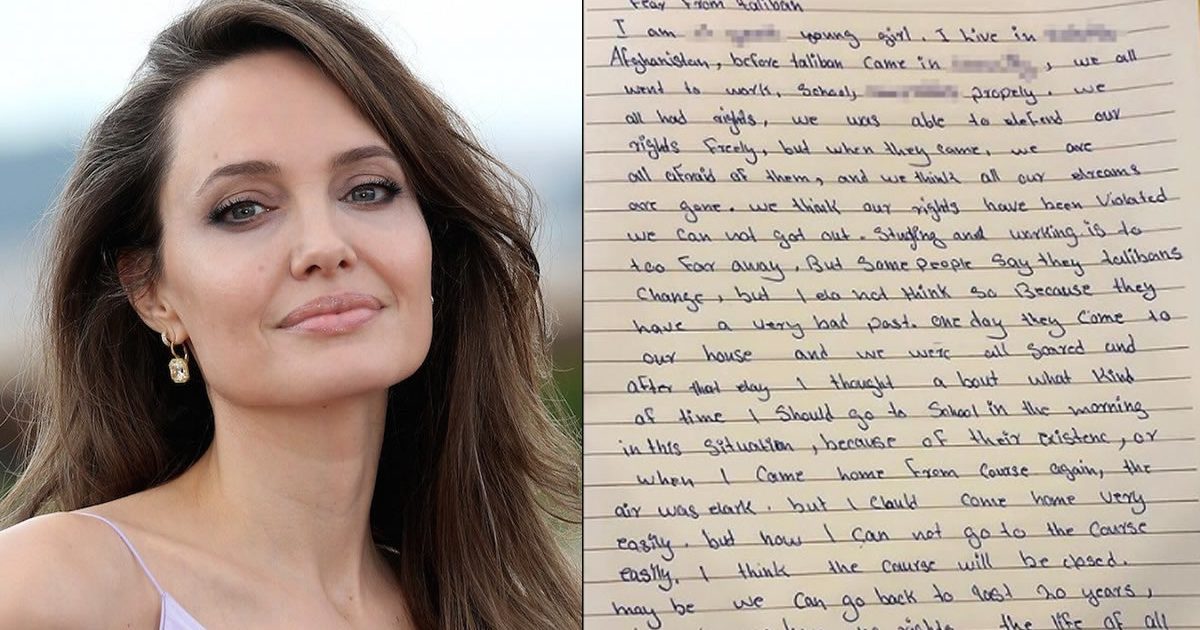 Fear From taliban
I am young girl. I live in
Afghanistan, before taliban came in , we all
went to work, school, propely. we
all had rights, we was able to defend our
rights freely, but when they came, we are
all afraid of them, and we think all our dreams
are gone. we think our rights have been violated
we can not got out. Studing and working is to
too far away. But some people say they talibans
change, but I do not think so Because they
have a very bad past. one day they come to
our house and we were all scared and
after that day I thought a bout what kind
of time I should go to school in the morning
in this situation, because of their existenc, or
when I came home from course again, the
air was dark. but I could come home very
easily. but now I can not go to the course
easily. I think the course will be closed.
may be we can go back to last 20 years,
rights the life of all